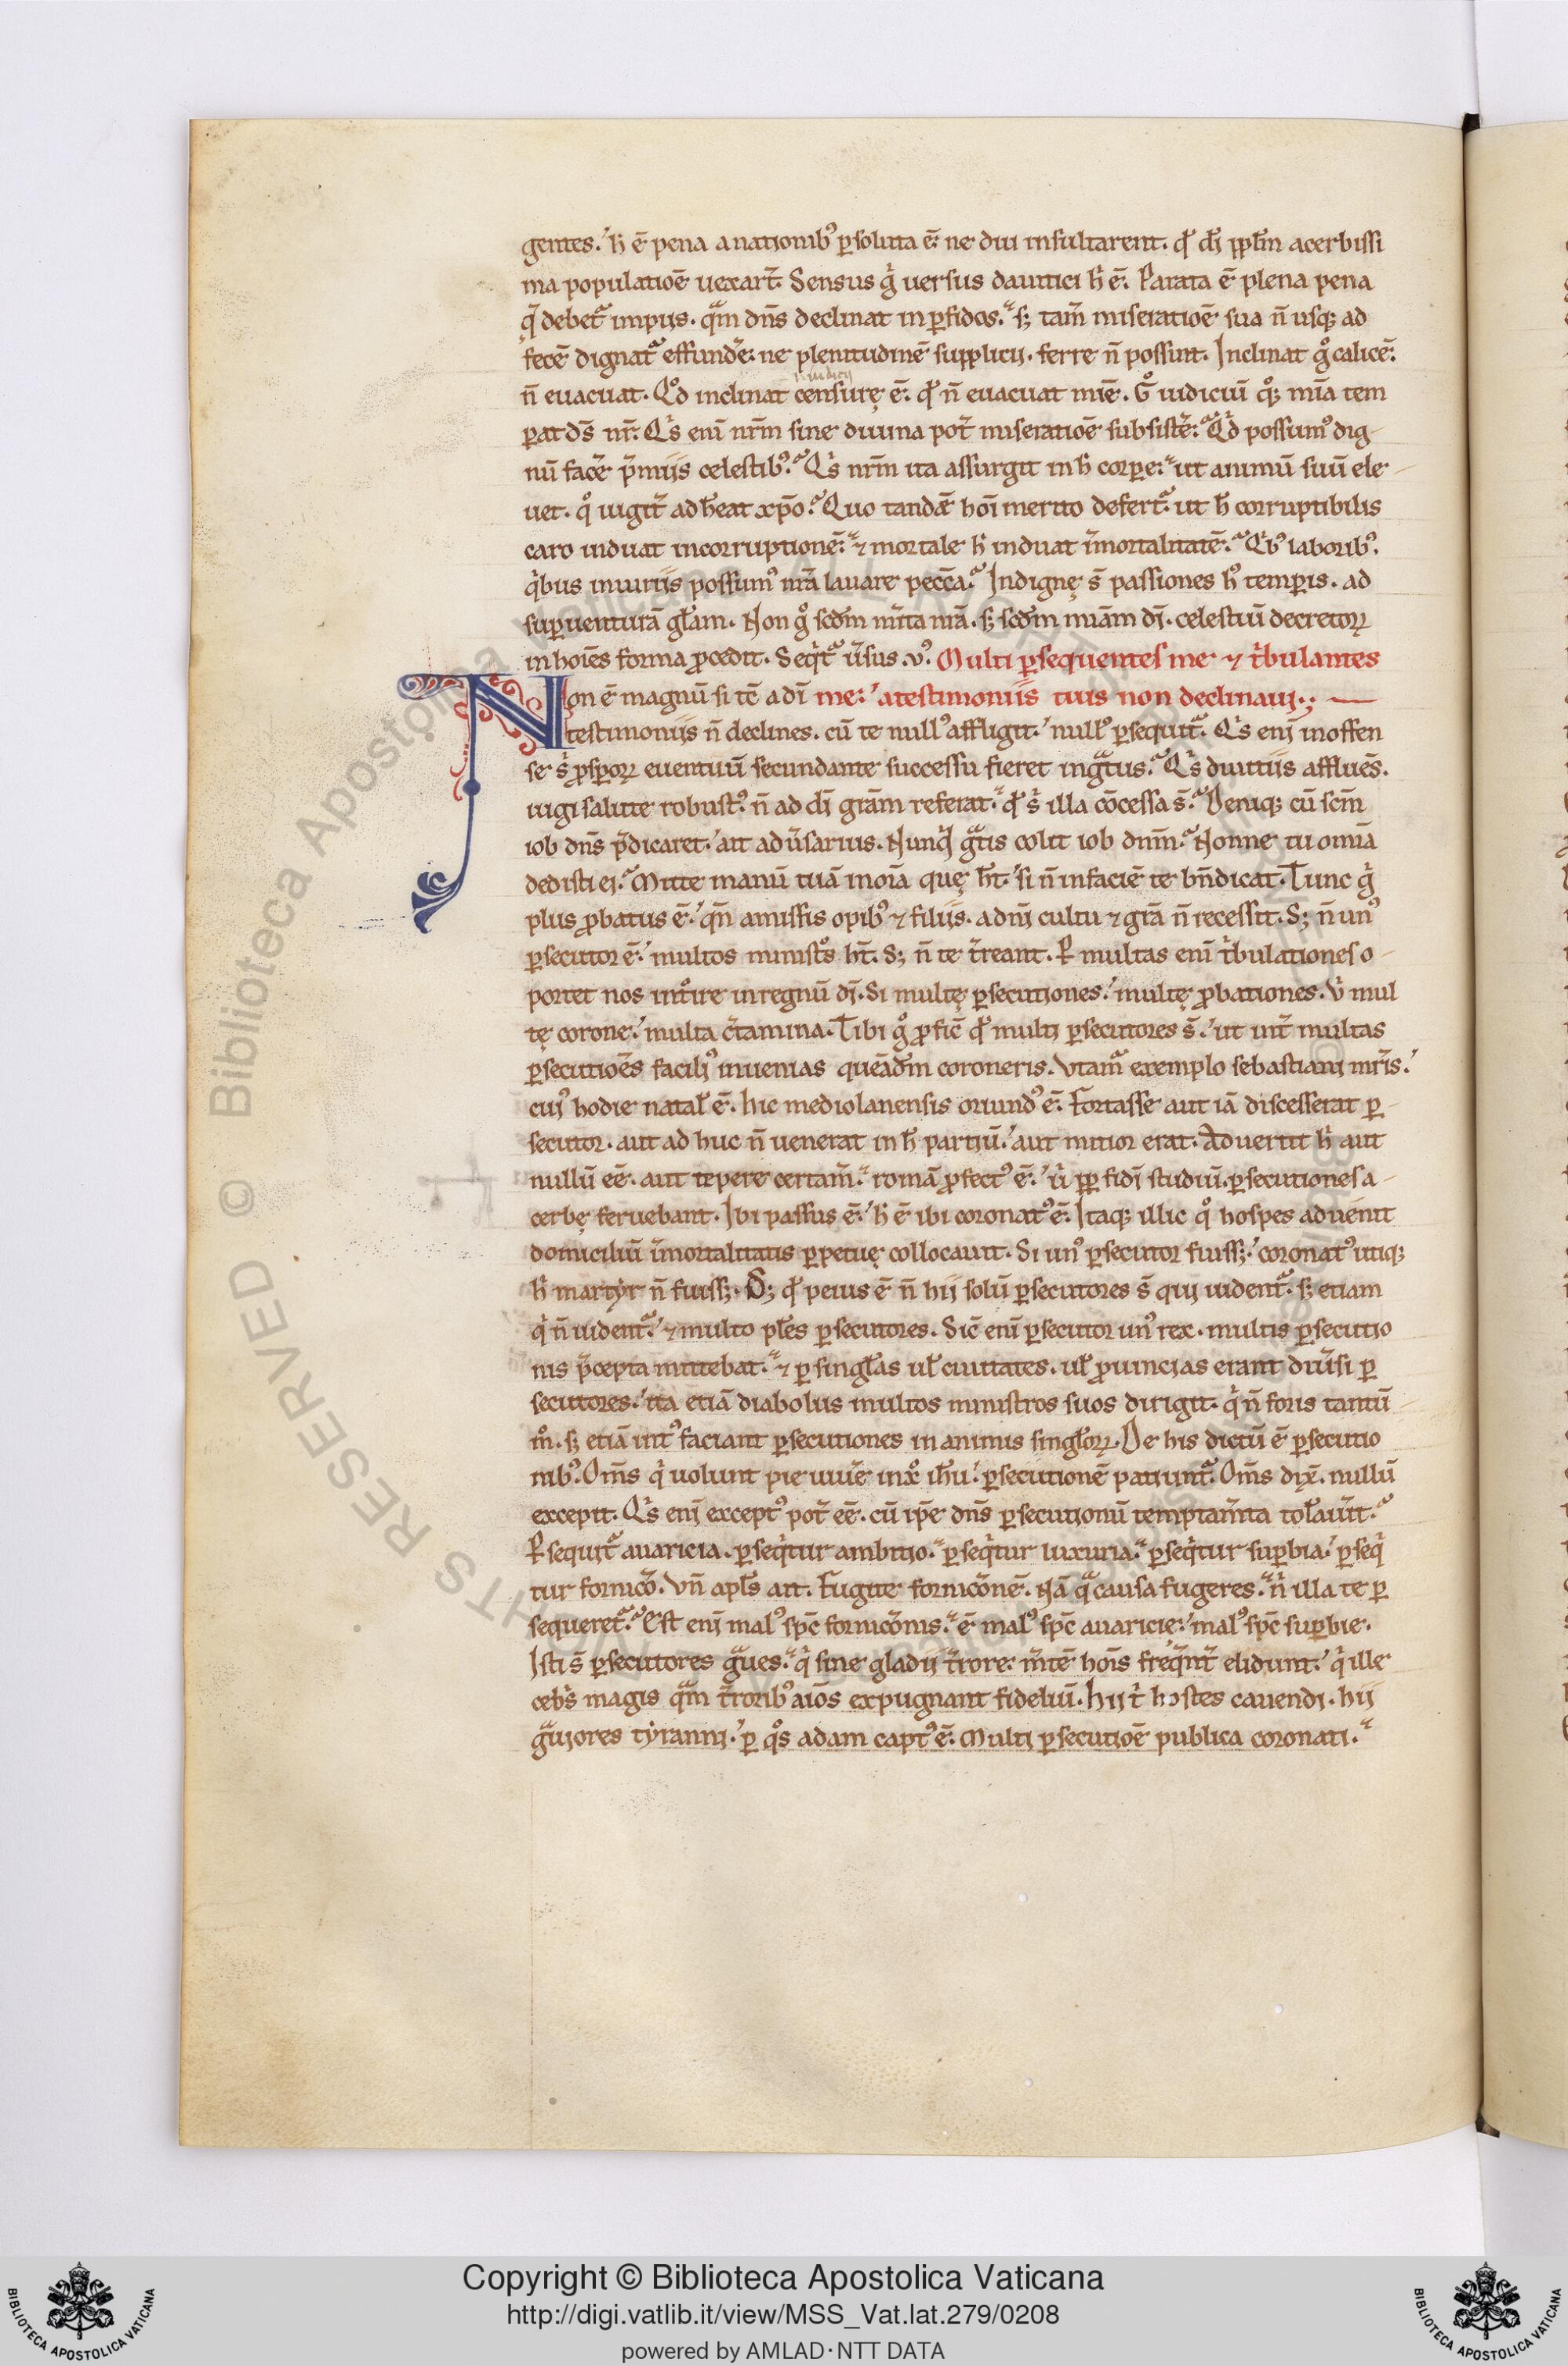 gentes. h̄ ē pena a nationibꝰ ꝑsoluta ē. ne diu insultarent. qď dī ppľm acerbissi
ma populatiōē uexarт̄. Sensus g̊ uersus dauitici h̄ ē. Parata ē plena pena
q̄ debet᷑ impiis. qᷓm dn̄s declinat in ꝑfidos. sꝫ tam̄ miseratiōē sua n̄ usqꝫ ad
fecē dignat᷑ effundē. ne plenitudinē supplicij. ferre n̄ possint. Inclinat g̊ calicē.
n̄ euacuat. Qd̊ inclinat censurę ē. qď n̄ euacuat mīe. G̊ iudiciū qͦꝫ mīa tem
ꝑat ds̄ nr̄. Qⁱs eni nr̄m sine diuina pot̄ miseratiōē subsistē. Qⁱd possumꝰ dig
nū facē p̄mijs celestibꝰ. Qⁱs nr̄m ita assurgit in h̄ corꝑe. ut animū suū ele
uet. qͦ iugit̄ adh̄eat xp̄o. Quo tandē hoī merito defert᷑. ut h̄ corruptibilis
caro induat incorruptionē. ⁊ mortale h̄ induat īmortalitatē. Qⁱbꝰ laboribꝰ.
qⁱbus iniurijs possumꝰ nr̄a lauare pecc̄a. Indignę s̄ passiones hꝰ temꝑis. ad
suꝑuenturā gľam. Non g̊ scďm mr̄ita nr̄a. sꝫ scďm miam dī. celestiū decretoꝝ
in hoīes forma ꝓcedit. Seqⁱt᷑ ūsus .v. Multi ꝑsequentes me ⁊ tⁱbulantes
Non ē magnū si tē a dī me. a testimonijs tuis non declinaui.
testimonijs n̄ declines. cū te nullꝰ affligit. nullꝰ ꝑsequit᷑. Qⁱs eni inoffen
se s̄ ꝓsꝑoꝝ euentuū secundante successu fieret ingᷓtus. Qⁱs diuitijs affluēs.
iugi salute robustꝰ. n̄ ad dī gr̄am referat. qď s̄ illa cōcessa s̄. Deniqꝫ cū sc̄m
iob dn̄s p̄dicaret. ait adūsarius. Nunqⁱd gᷓtis colit iob dnm̄. Nonne tu omīa
dedisti ei. Mitte manū tuā in oīa quę ht̄. si n̄ in faciē te bn̄dicat. Tunc g̊
plus ꝓbatus ē. qn̄ amissis opibꝰ ⁊ filijs. a dnī cultu ⁊ gr̄a n̄ recessit. Sꝫ n̄ unꝰ
ꝑsecutor ē. multos ministͦs ht̄. Sꝫ n̄ te t̄reant. Ꝑ multas eni tⁱbulationes o
portet nos intͦire in regnū dī. Si multę ꝑsecutiones. multę ꝓbationes. Vⁱ mul
tę corone. multa c̄tamina. Tibi g̊ ꝓfic̄ qď multi ꝑsecutores s̄. ut int̄ multas
ꝑsecutiōes faciliꝰ inuenias queādm̄ coroneris. Vtam᷑ exemplo sebastiani mr̄is.
cuiꝰ hodie natał ē. hic mediolanensis oriundꝰ ē. Fortasse aut iā discesserat ꝑ
secutor. aut ad huc n̄ uenerat in h̄ partiū. aut mitior erat. Aduertit h̄ aut
nullū eē. aut tepere certam̄. romā ꝓfectꝰ ē. uⁱ ꝓꝑ fidī studiū. ꝑsecutiones a
cerbę feruebant. Ibi passus ē. h̄ ē ibi coronatꝰ ē. Itaqꝫ illic qͦ hospes aduenit
domiciliū īmortalitatis ꝑpetuę collocauit. Si unꝰ ꝑsecutor fuissꝫ. coronatꝰ utiqꝫ
h̄ martyr n̄ fuissꝫ. Sꝫ qď peius ē n̄ hij solū ꝑsecutores s̄ qui uident᷑. sꝫ etiam
qⁱ n̄ uident᷑. ⁊ multo pľes ꝑsecutores. Sic̄ eni ꝑsecutor unꝰ rex. multis ꝑsecutio
nis p̄cepta mittebat. ⁊ ꝑ singľas uľ ciuitates. uľ ꝓuincias erant diūsi ꝑ
secutores. ita etiā diabolus multos ministros suos dirigit. qⁱ n̄ foris tantū
mͦ. sꝫ etiā intꝰ faciant ꝑsecutiones in animis singľoꝝ. De his dictū ē ꝑsecutio
nibꝰ. Om̄s qⁱ uolunt pie uiuē in xͦ ihu. ꝑsecutionē patiunt᷑. Om̄s dix̄. nullū
excepit. Qⁱs eni exceptꝰ pot̄ eē. cū ip̄e dn̄s ꝑsecutionū temptam̄ta toľauīt.
Ꝑsequit᷑ auaricia. ꝑseqⁱtur ambitio. ꝑseqⁱtur luxuria. ꝑseqⁱtur suꝑbia. ꝑseqⁱ
tur fornicō. Vn̄ apľs ait. Fugite fornicōnē. Nā qᷓ causa fugeres. nⁱ illa te ꝑ
sequeret᷑. Est eni malꝰ spc̄ fornicōnis. ē malꝰ spc̄ auaricie. malꝰ spc̄ suꝑbie.
Isti s̄ ꝑsecutores gᷓues. qⁱ sine gladij t̄rore. m̄tē hoīs freqn̄t̄ elidunt. qⁱ ille
cebⁱs magis qᷓm t̄roribꝰ aīos expugnant fideliū. hij t̄ hostes cauendi. hij
gᷓuiores tyranni. ꝑ qͦs adam captꝰ ē. Multi ꝑsecutiōē publica coronati.
© Biblioteca Apostolica Vaticana
RIGHTS RESERVED
Copyright © Biblioteca Apostolica Vaticana
http://digi.vatlib.it/view/MSS_Vat.lat.279/0208
powered by AMLAD·NTT DATA
BIBLIOTECA APOSTOLICA VATICANA
BIBLIOTECA APOSTOLICA VATICANA